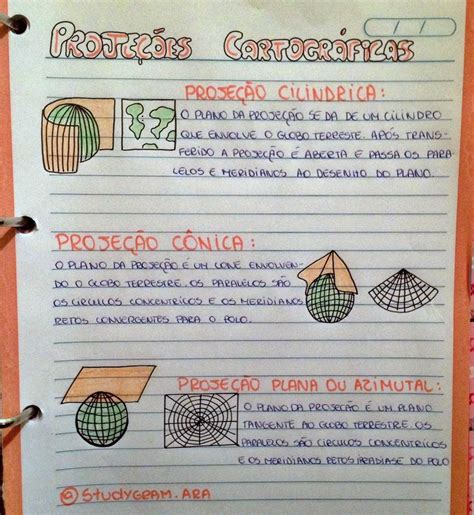 PROJEÇÕES CARTOGRÁFICAS
PROJEÇÃO CILINDRICA:
O PLANO DA PROJEÇÃO SE DA DE UM CILINDRO
QUE ENVOLVE O GLOBO TERRESTE. APÓS TRANS-
FERIDO A PROJEÇÃO É ABERTA E PASSA OS PARA
LELOS E MERIDIANOS AO DESENHO DO PLANO.
PROJEÇÃO CÔNICA:
O PLANO DA PROJEÇÃO É UM CONE ENVOLVEN-
DO O GLOBO TERRESTRE. OS PARALELOS SÃO
OS CIRCULOS CONCENTRICOS E OS MERIDIANOS
RETOS CONVERGENTES PARA O POLO.
PROJEÇÃO PLANA OU AZIMUTAL:
O PLANO DA PROJEÇÃO É UM PLANO
TANGENTE AO GLOBO TERRESTRE. OS
PARALELOS SÃO CIRCULOS CONCENTRICOS
E OS MERIDIANOS RETOS IRRADIASE DO POLO
@STUDYGRAM.ARA